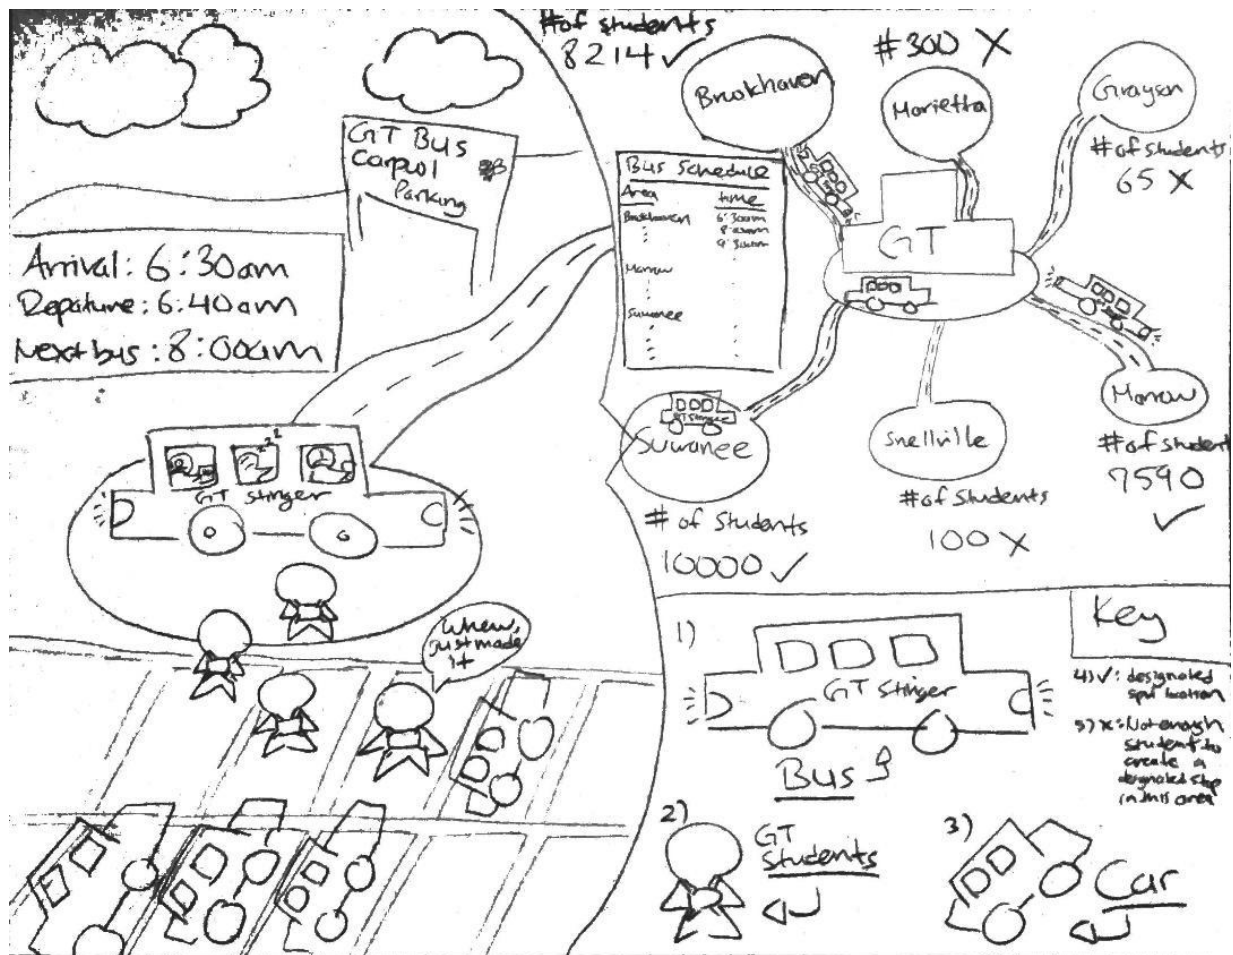 GT Bus
Carpool
Parking
Arrival: 6:30am
Depature: 6:40am
Next bus: 8:00am
GT Stinger
Whew,
just made
it
# of students
8214 ✓
Brookhaven
#300 X
Marietta
Grayson
# of students
65 X
Bus Schedule
Area time
Brookhaven 6:30am
8:00am
9:30am
Morrow
Suwanee
GT
Suwanee
GT Stinger
# of Students
10000 ✓
Snellville
# of Students
100 X
Morrow
# of student
7590
✓
Key
1)
GT Stinger
Bus
2)
GT
Students
3)
Car
4) ✓: designated
location
5) X: Not enough
student to
create a
designated stop
in this area